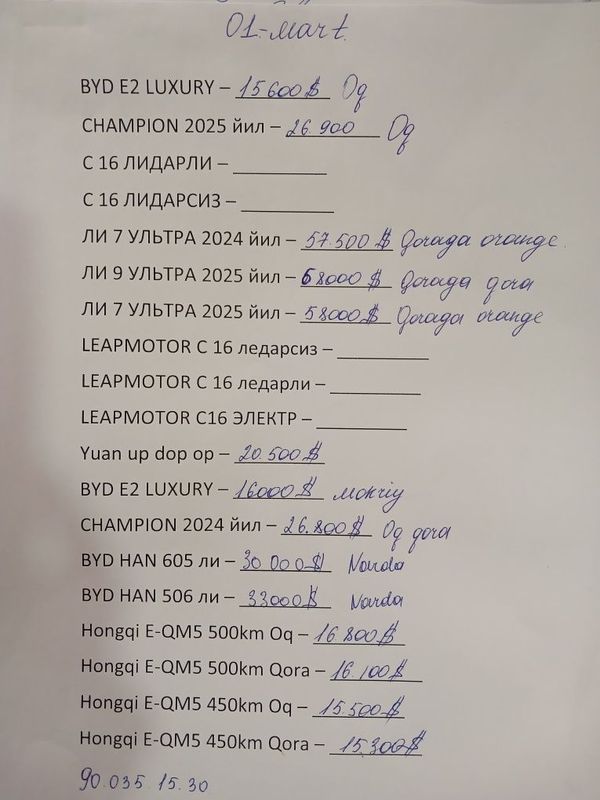 01-Mart.
BYD E2 LUXURY – 15600$ Oq
CHAMPION 2025 йил – 26.900 Oq
С 16 ЛИДАРЛИ – _________
С 16 ЛИДАРСИЗ – _________
ЛИ 7 УЛЬТРА 2024 йил – 57.500 $ Qorada orange.
ЛИ 9 УЛЬТРА 2025 йил – 68000 $ Qorada qora
ЛИ 7 УЛЬТРА 2025 йил – 58000 $ Qorada orange
LEAPMOTOR С 16 ледарсиз – _________
LEAPMOTOR С 16 ледарли – _________
LEAPMOTOR С16 ЭЛЕКТР – _________
Yuan up dop op – 20.500 $
BYD E2 LUXURY – 16000 $ mokriy
CHAMPION 2024 йил – 26.800 $ Oq qora
BYD HAN 605 ли – 30 000 $ Narda
BYD HAN 506 ли – 33000 $ Narda
Hongqi E-QM5 500km Oq – 16 800 $
Hongqi E-QM5 500km Qora – 16.100 $
Hongqi E-QM5 450km Oq – 15.500 $
Hongqi E-QM5 450km Qora – 15.300 $
90.035.15.30